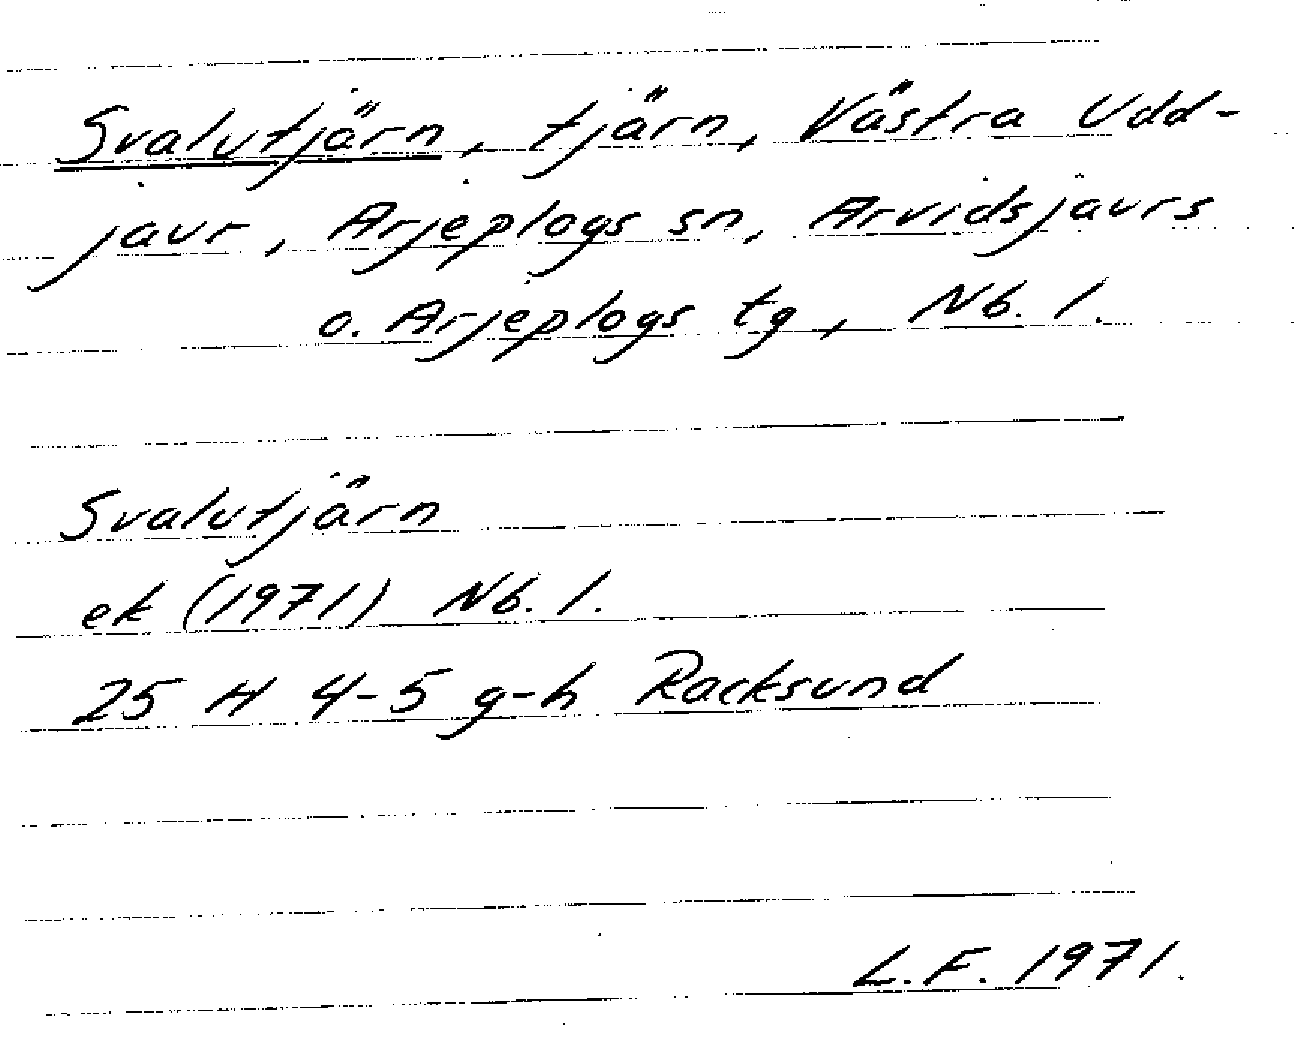 Svalutjärn, tjärn, Västra Udd-
jaur, Arjeplogs sn, Arvidsjaurs
o. Arjeplogs tg, Nb. l.
Svalutjärn
ek (1971) Nb. l.
25 H 4-5 g-h Racksund
L.F. 1971.